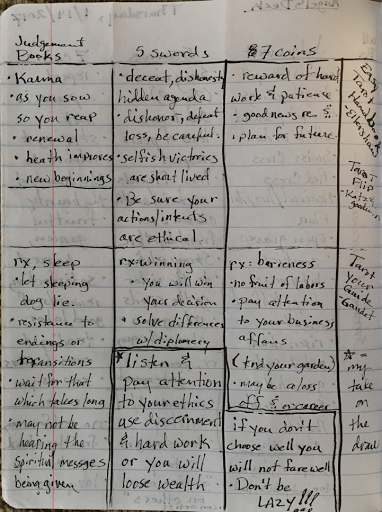 Judgement
Books
• Karma
• as you sow
so you reap
• renewal
• heath improves
• new beginnings
rx, sleep
• let sleeping
dog lie.
• resistance to
endings or
transitions
• wait on that
which takes long
• may not be
hearing the
Spiritual messges
being given
5 swords
• deceat, dishonesty
hidden agenda
• dishonor, defeat
loss, be careful.
• selfish victries
are short lived
• Be sure your
actions/intents
are ethical.
rx: winning
• you will win
your decision
• solve differences
w/ diplomecy
* listen &
pay attention
to your ethics
use discernment
& hard work
or you will
loose wealth
7 coins
• reward of hard
work & patience
• good news re $
• plan for future
rx: bareness
• no fruit of labors
• pay attention
to your business
affairs
(tend your garden)
• may be a loss
off $ or career
if you don't
choose well you
will not farewell
• Don't be
LAZY!!!
Easy
Tarot
Handbook
Tarot
Flip
Tarot
Your
Guide
* =
my
take
on
the
draw